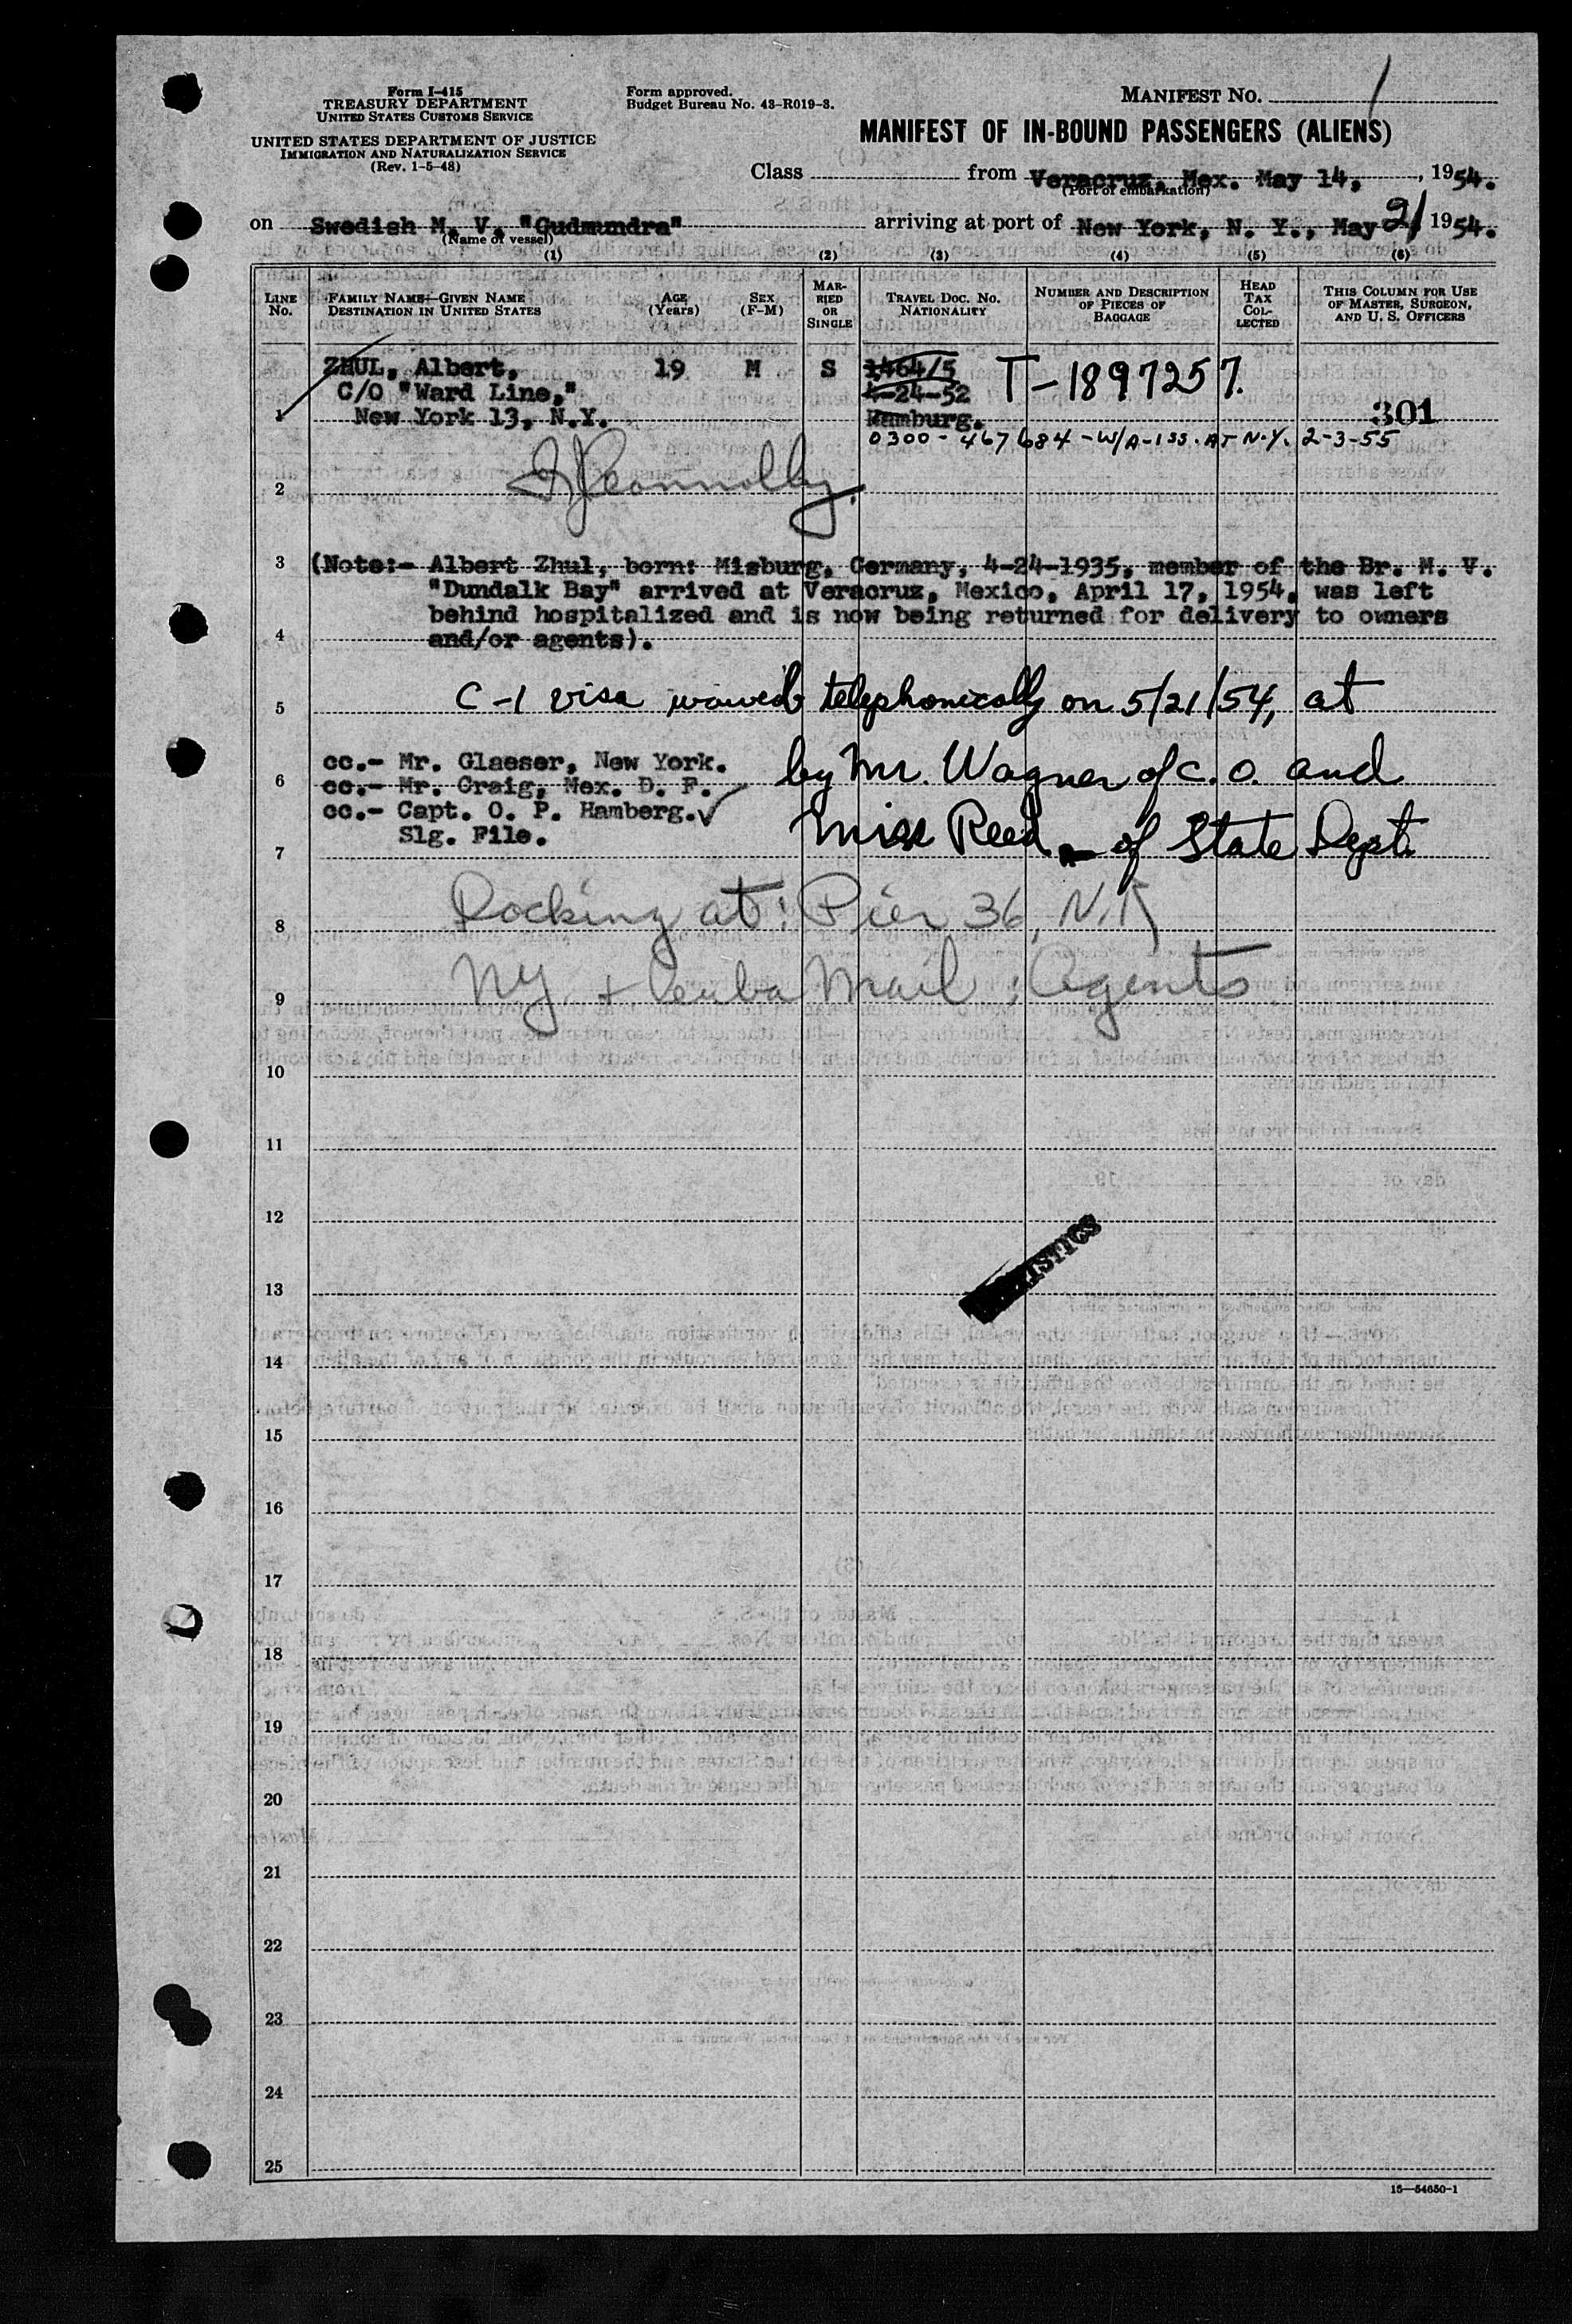 Form I-415
TREASURY DEPARTMENT
UNITED STATES CUSTOMS SERVICE
UNITED STATES DEPARTMENT OF JUSTICE
IMMIGRATION AND NATURALIZATION SERVICE
(Rev. 1-5-48)
Form approved.
Budget Bureau No. 43-R019-3.
MANIFEST No. 1
MANIFEST OF IN-BOUND PASSENGERS (ALIENS)
Class from Veracruz, Mex. May 14, , 1954.
(Port of embarkation)
on Swedish M. V. "Gudmundra" arriving at port of New York, N. Y., May 21 1954.
(Name of vessel)
(1) (2) (3) (4) (5) (6)
LINE No. FAMILY NAME—GIVEN NAME DESTINATION IN UNITED STATES AGE (Years) SEX (F-M) MARRIED OR SINGLE TRAVEL DOC. NO. NATIONALITY NUMBER AND DESCRIPTION OF PIECES OF BAGGAGE HEAD TAX COLLECTED THIS COLUMN FOR USE OF MASTER, SURGEON, AND U. S. OFFICERS
ZHUL, Albert, 19 M S 1464/5 T-1897257.
C/O "Ward Line," 4-24-52
1 New York 13, N.Y. Hamburg. 301
0300-467684-W/A-ISS. AT N.Y. 2-3-55
2
3 (Note:- Albert Zhul, born: Misburg, Germany, 4-24-1935, member of the Br. M. V.
"Dundalk Bay" arrived at Veracruz, Mexico, April 17, 1954, was left
behind hospitalized and is now being returned for delivery to owners
4 and/or agents).
5 C-1 visa waived telephonically on 5/21/54, at
cc.- Mr. Glaeser, New York.
6 cc.- Mr. Craig, Mex. D. F. by Mr. Wagner of C. O. and
cc.- Capt. O. P. Hamberg.
Slg. File.
7 Miss Reed of State Dept.
8 Docking at: Pier 36, N.R
9 NY. + Cuba Mail: Agents
10
11
12
13
14
15
16
17
18
19
20
21
22
23
24
25
16—54650-1